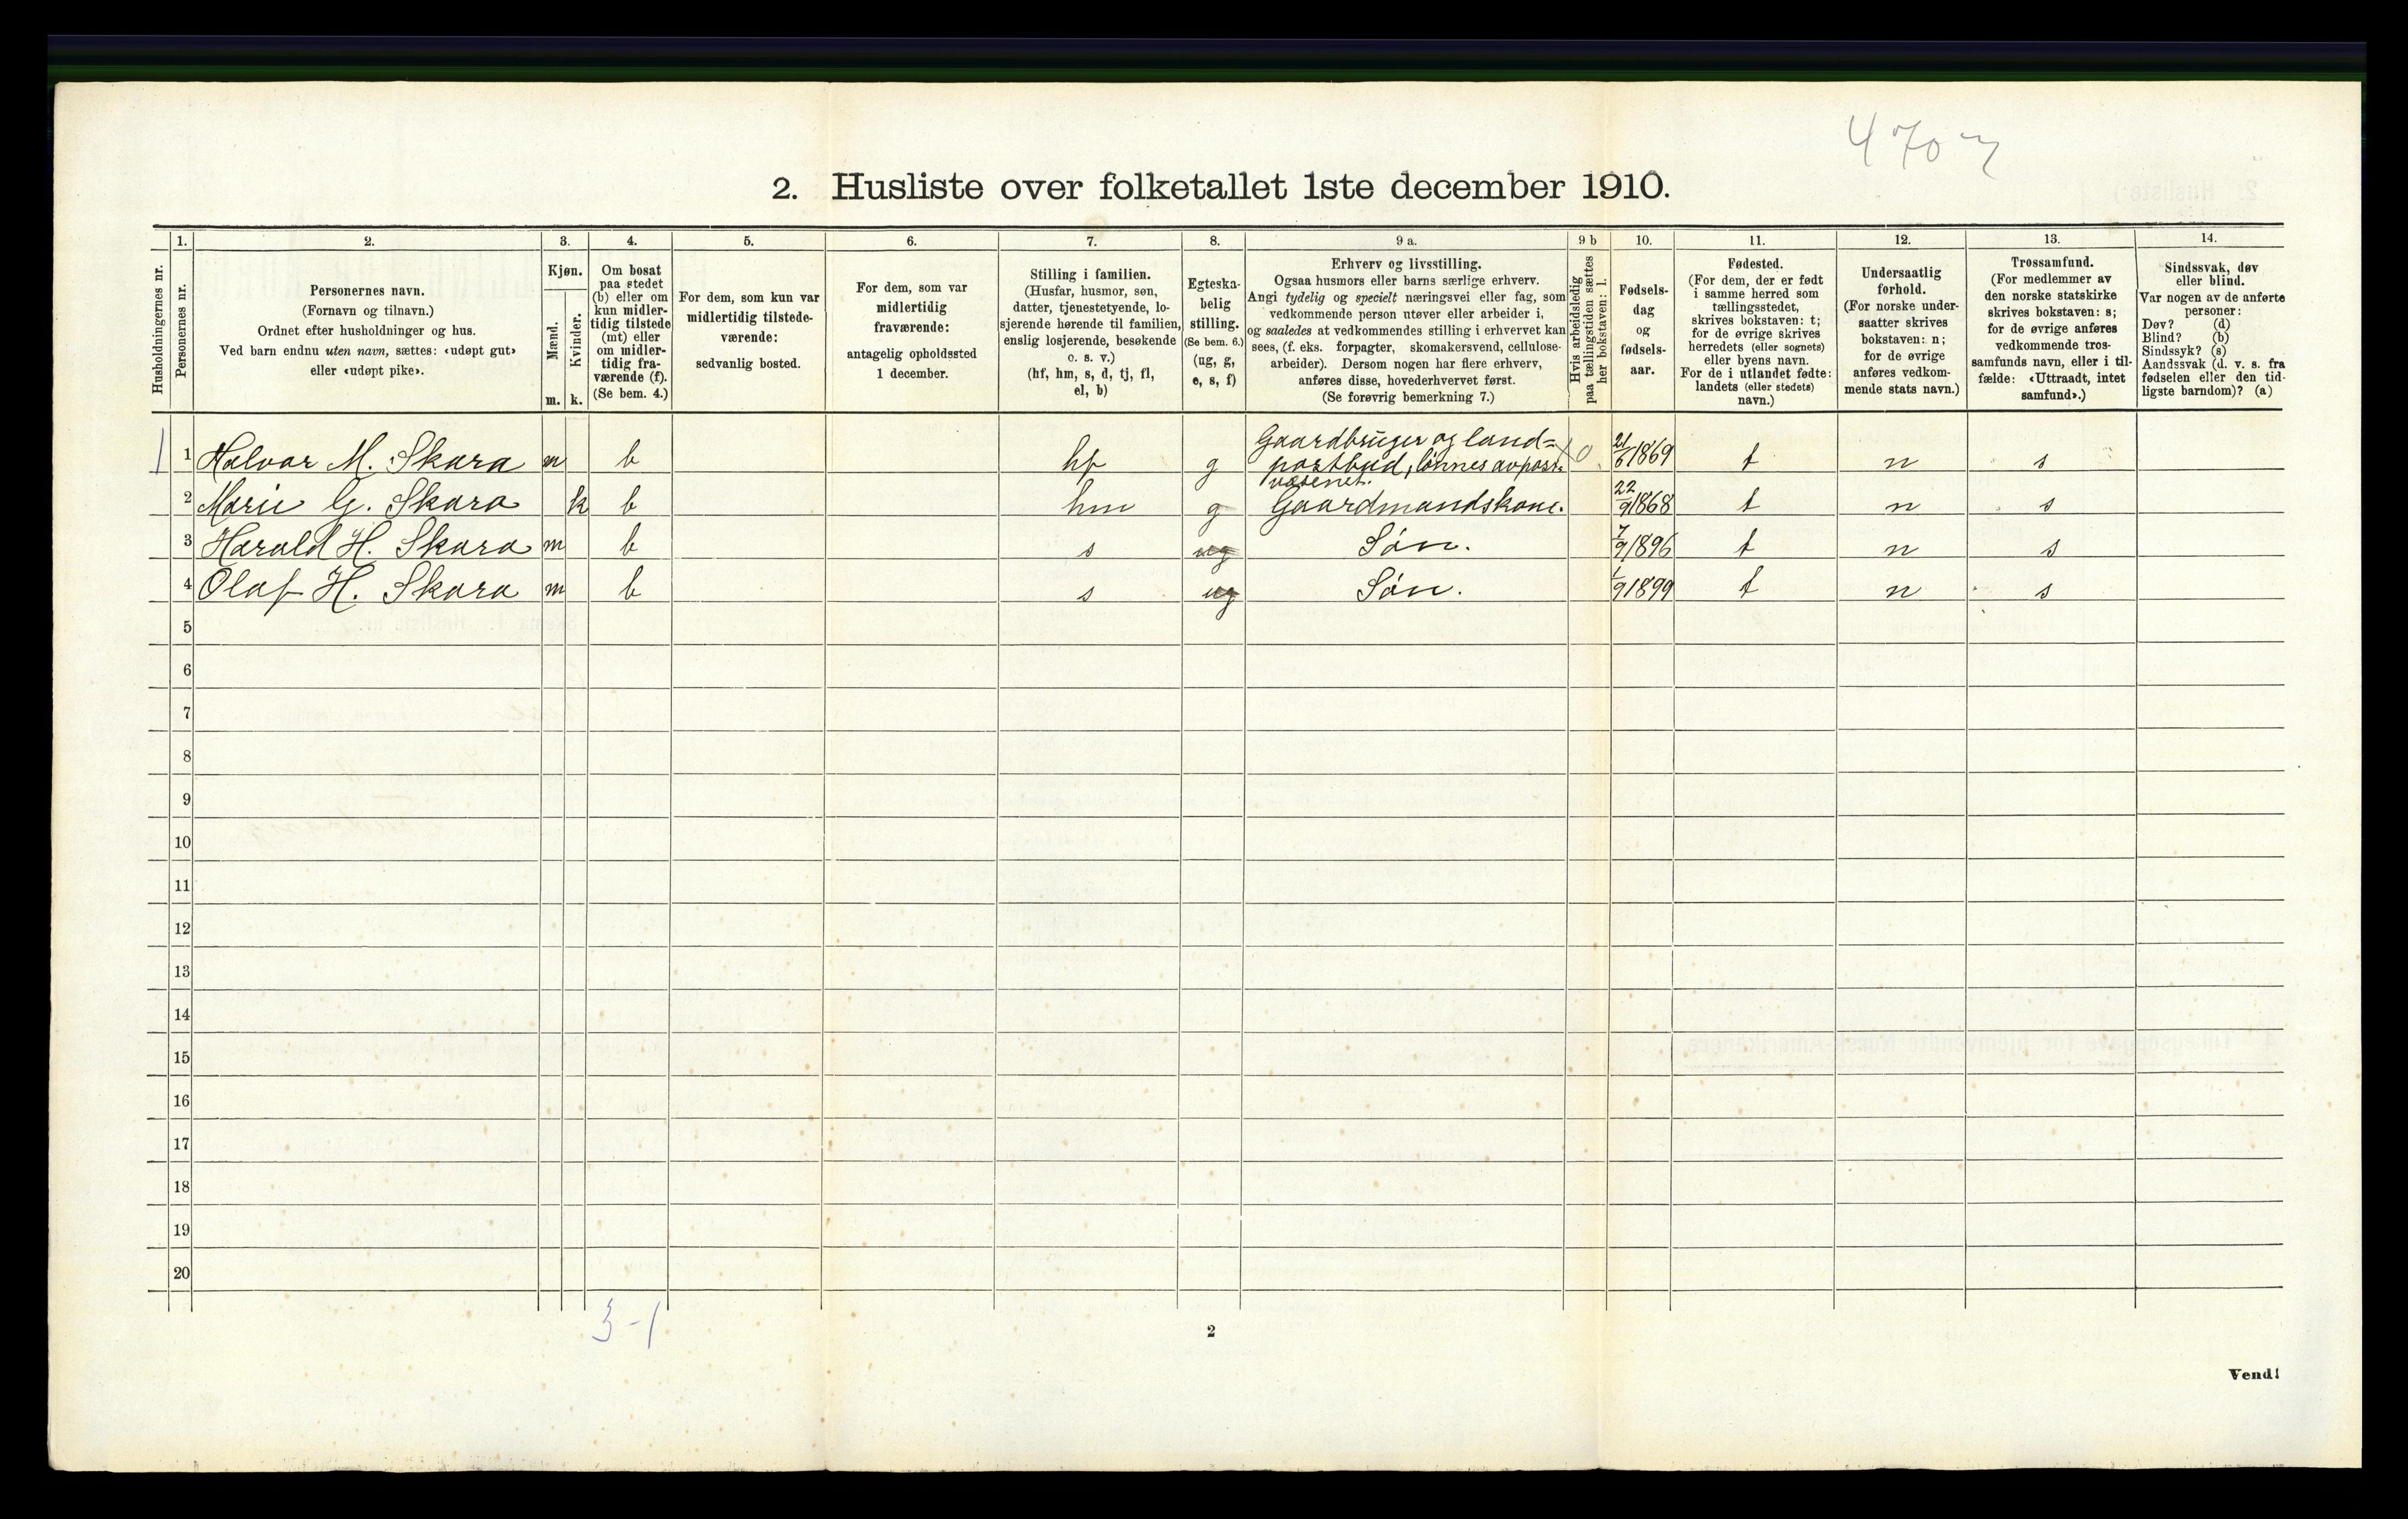 470
2. Husliste over folketallet 1ste december 1910.
Husholdningernes nr.
1.
Personernes nr.
2.
Personernes navn.
(Fornavn og tilnavn.)
Ordnet efter husholdninger og hus.
Ved barn endnu uten navn, sættes: «udøpt gut»
eller «udøpt pike».
3.
Kjøn.
Mænd.
Kvinder.
m. k.
4.
Om bosat
paa stedet
(b) eller om
kun midler-
tidig tilstede
(mt) eller
om midler-
tidig fra-
værende (f).
(Se bem. 4.)
5.
For dem, som kun var
midlertidig tilstede-
værende:
sedvanlig bosted.
6.
For dem, som var
midlertidig
fraværende:
antagelig opholdssted
1 december.
7.
Stilling i familien.
(Husfar, husmor, søn,
datter, tjenestetyende, lo-
sjerende hørende til familien,
enslig losjerende, besøkende
o. s. v.)
(hf, hm, s, d, tj, fl,
el, b)
8.
Egteska-
belig
stilling.
(Se bem. 6.)
(ug, g,
e, s, f)
9 a.
Erhverv og livsstilling.
Ogsaa husmors eller barns særlige erhverv.
Angi tydelig og specielt næringsvei eller fag, som
vedkommende person utøver eller arbeider i,
og saaledes at vedkommendes stilling i erhvervet kan
sees, (f. eks. forpagter, skomakersvend, cellulose-
arbeider). Dersom nogen har flere erhverv,
anføres disse, hovederhvervet først.
(Se forøvrig bemerkning 7.)
9 b
Hvis arbeidsledig
paa tællingstiden sættes
her bokstaven: l.
10.
Fødsels-
dag
og
fødsels-
aar.
11.
Fødested.
(For dem, der er født
i samme herred som
tællingsstedet,
skrives bokstaven: t;
for de øvrige skrives
herredets (eller sognets)
eller byens navn.
For de i utlandet fødte:
landets (eller stedets)
navn.)
12.
Undersaatlig
forhold.
(For norske under-
saatter skrives
bokstaven: n;
for de øvrige
anføres vedkom-
mende stats navn.)
13.
Trossamfund.
(For medlemmer av
den norske statskirke
skrives bokstaven: s;
for de øvrige anføres
vedkommende tros-
samfunds navn, eller i til-
fælde: «Uttraadt, intet
samfund».)
14.
Sindssvak, døv
eller blind.
Var nogen av de anførte
personer:
Døv? (d)
Blind? (b)
Sindssyk? (s)
Aandssvak (d. v. s. fra
fødselen eller den tid-
ligste barndom)? (a)
1 1 Halvor M. Skara m b hf g Gaardbruger og land= 0 21/6 1869 t n s
postbud, lønnes av post=
væsenet.
2 Marie G. Skara k b hm g Gaardmandskone. 22/9 1868 t n s
3 Harald H. Skara m b s ug Søn. 7/9 1896 t n s
4 Olaf H. Skara m b s ug Søn. 1/9 1899 t n s
5
6
7
8
9
10
11
12
13
14
15
16
17
18
19
20
3-1
2
Vend!